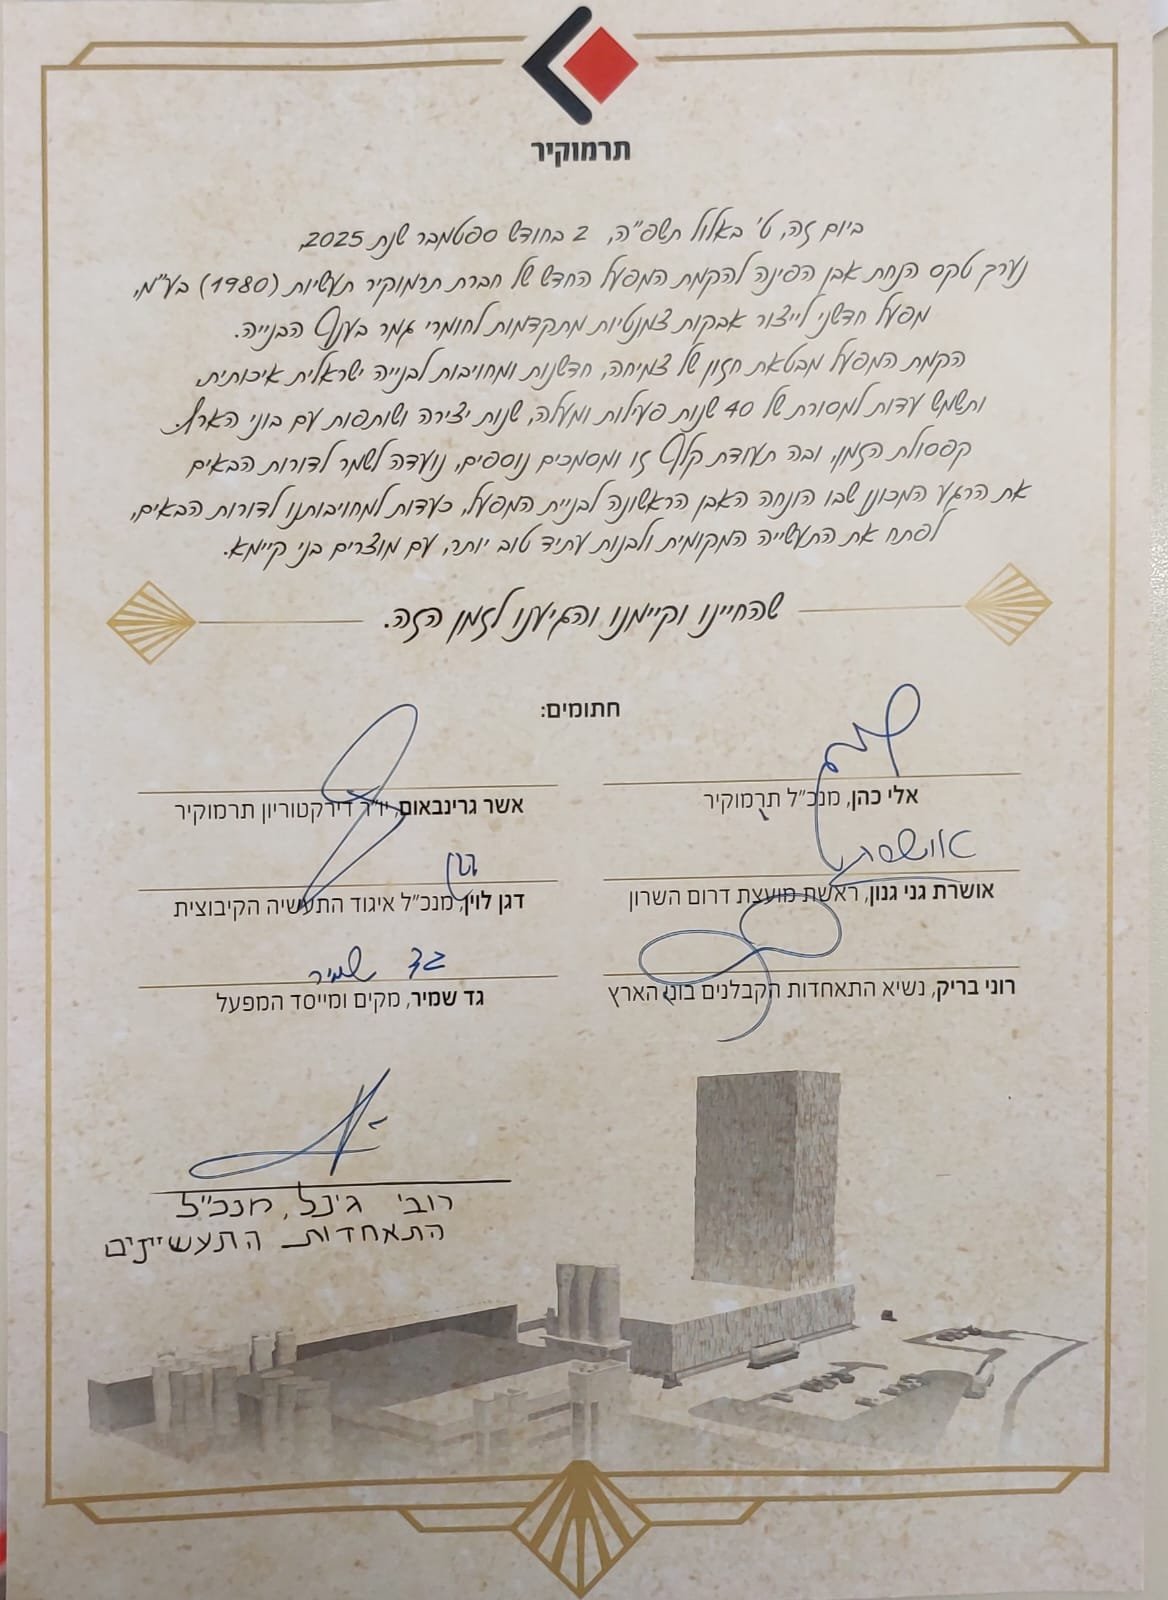 תרמוקיר
ביום זה, ט' באלול תשפ"ה, 2 בחודש ספטמבר שנת 2025,
נערך טקס הנחת אבן הפינה להקמת המפעל החדש של חברת תרמוקיר תעשיות (1980) בע"מ,
מפעל חדשני לייצור אבקות צמנטיות מתקדמות לחומרי גמר בענף הבנייה.
הקמת המפעל מבטאת חזון של צמיחה, חדשנות ומחויבות לבנייה ישראלית איכותית,
ותשמש עדות למסורת של 40 שנות פעילות ומעלה, שנות יצירה ושותפות עם בוני הארץ.
קפסולת הזמן, ובה תעודת קלף זו ומסמכים נוספים, נועדה לשמר לדורות הבאים
את הרגע המכונן שבו הונחה האבן הראשונה לבניית המפעל, כעדות למחויבותנו לדורות הבאים,
לפתח את התעשייה המקומית ולבנות עתיד טוב יותר, עם מוצרים בני קיימא.
שהחיינו וקיימנו והגיענו לזמן הזה.
חתומים:
אלי כהן, מנכ"ל תרמוקיר
אשר גרינבאום, יו"ר דירקטוריון תרמוקיר
אושרת
אושרת גני גנון, ראשת מועצת דרום השרון
דגן
דגן לוין, מנכ"ל איגוד התעשיה הקיבוצית
רוני בריק, נשיא התאחדות הקבלנים בוני הארץ
גד שמיר
גד שמיר, מקים ומייסד המפעל
רובי גינל, מנכ"ל
התאחדות התעשיינים